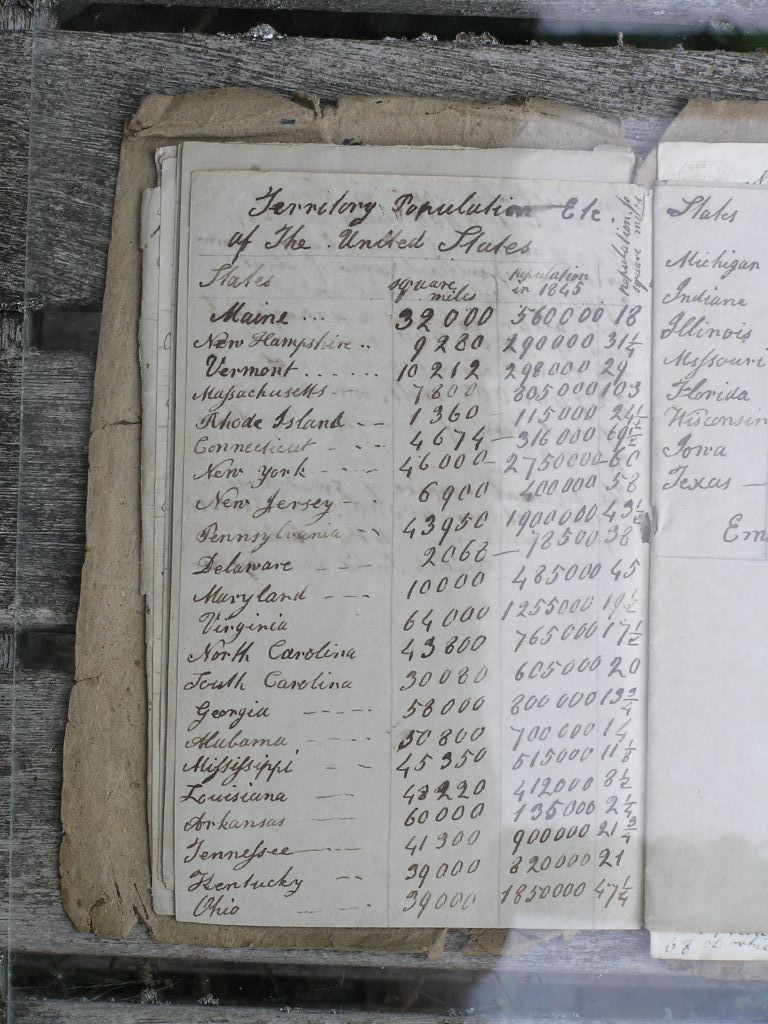 Territory Population Etc
of The United States
States square miles Population in 1845 population to square miles
Maine ... 32000 560000 18
New Hampshire .. 9280 290000 31¼
Vermont ...... 10212 298000 29
Massachusetts -- 7800 805000 103
Rhode Island -- 1360 115000 24½
Connecticut - -- 4674 - 316000 69½
New York - --- 46000 - 2750000 - 60
New Jersey - - 6900 400000 58
Pennsylvania -- 43950 1900000 43½
Delaware --- 2068 - 78500 38
Maryland --- 10000 485000 45
Virginia 64000 1255000 19½
North Carolina 43800 765000 17½
South Carolina 30080 605000 20
Georgia ---- 58000 800000 13¾
Alabama ---- 50800 700000 14
Mississippi - - 45350 515000 11
Louisiana --- 48220 412000 8½
Arkansas --- 60000 135000 2¼
Tennessee --- 41300 900000 21¾
Kentucky -- 39000 820000 21
Ohio --- 39000 1850000 47¼
States
Michigan
Indiana
Illinois
Missouri
Florida
Wisconsin
Iowa
Texas —
Em
68